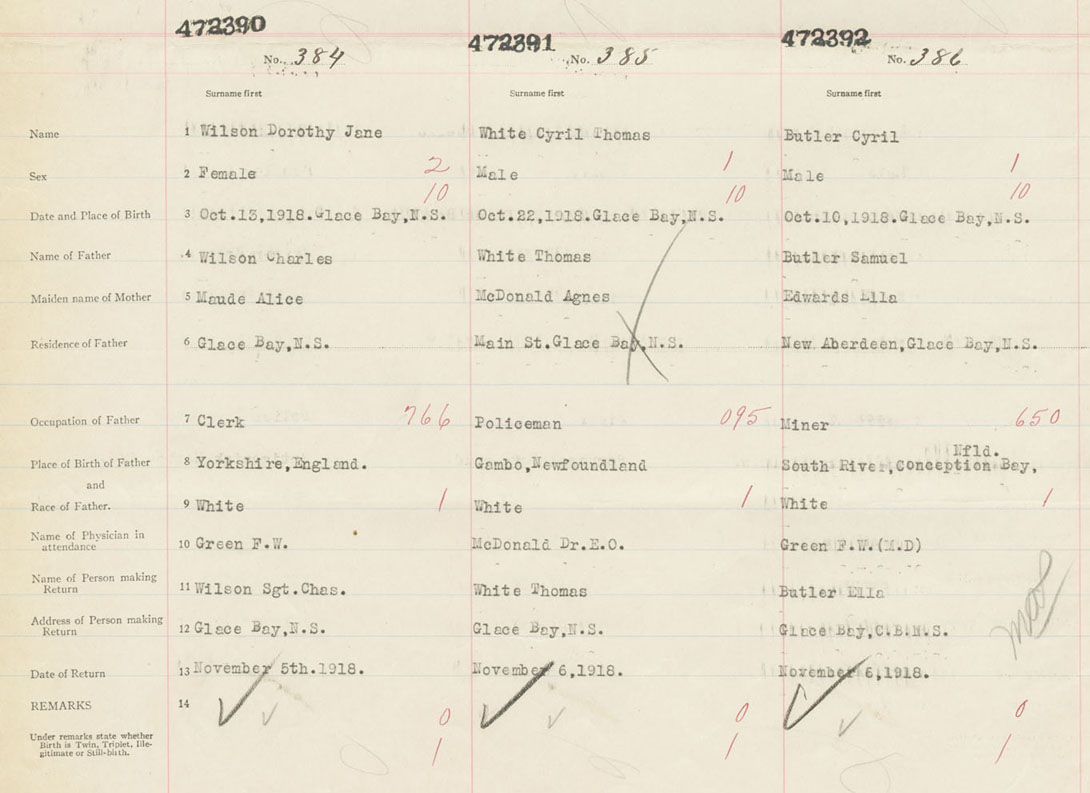 472390 472391 472392
No. 384 No. 385 No. 386
Surname first Surname first Surname first
Name 1 Wilson Dorothy Jane White Cyril Thomas Butler Cyril
Sex 2 Female 2 Male 1 Male 1
10 10 10
Date and Place of Birth 3 Oct.13,1918.Glace Bay,N.S. Oct.22,1918.Glace Bay,N.S. Oct.10,1918.Glace Bay,N.S.
Name of Father 4 Wilson Charles White Thomas Butler Samuel
Maiden name of Mother 5 Maude Alice McDonald Agnes Edwards Ella
Residence of Father 6 Glace Bay,N.S. Main St.Glace Bay,N.S. New Aberdeen,Glace Bay,N.S.
Occupation of Father 7 Clerk 766 Policeman 095 Miner 650
Nfld.
Place of Birth of Father 8 Yorkshire,England. Gambo,Newfoundland South River,Conception Bay,
and
Race of Father. 9 White 1 White 1 White 1
Name of Physician in
attendance 10 Green F.W. McDonald Dr.E.O. Green F.W.(M.D)
Name of Person making
Return 11 Wilson Sgt.Chas. White Thomas Butler Ella
Address of Person making
Return 12 Glace Bay,N.S. Glace Bay,N.S. Glace Bay,C.B.N.S.
Date of Return 13 November 5th.1918. November 6,1918. November 6,1918.
REMARKS 14
0 0 0
Under remarks state whether
Birth is Twin, Triplet, Ille-
gitimate or Still-birth.
1 1 1